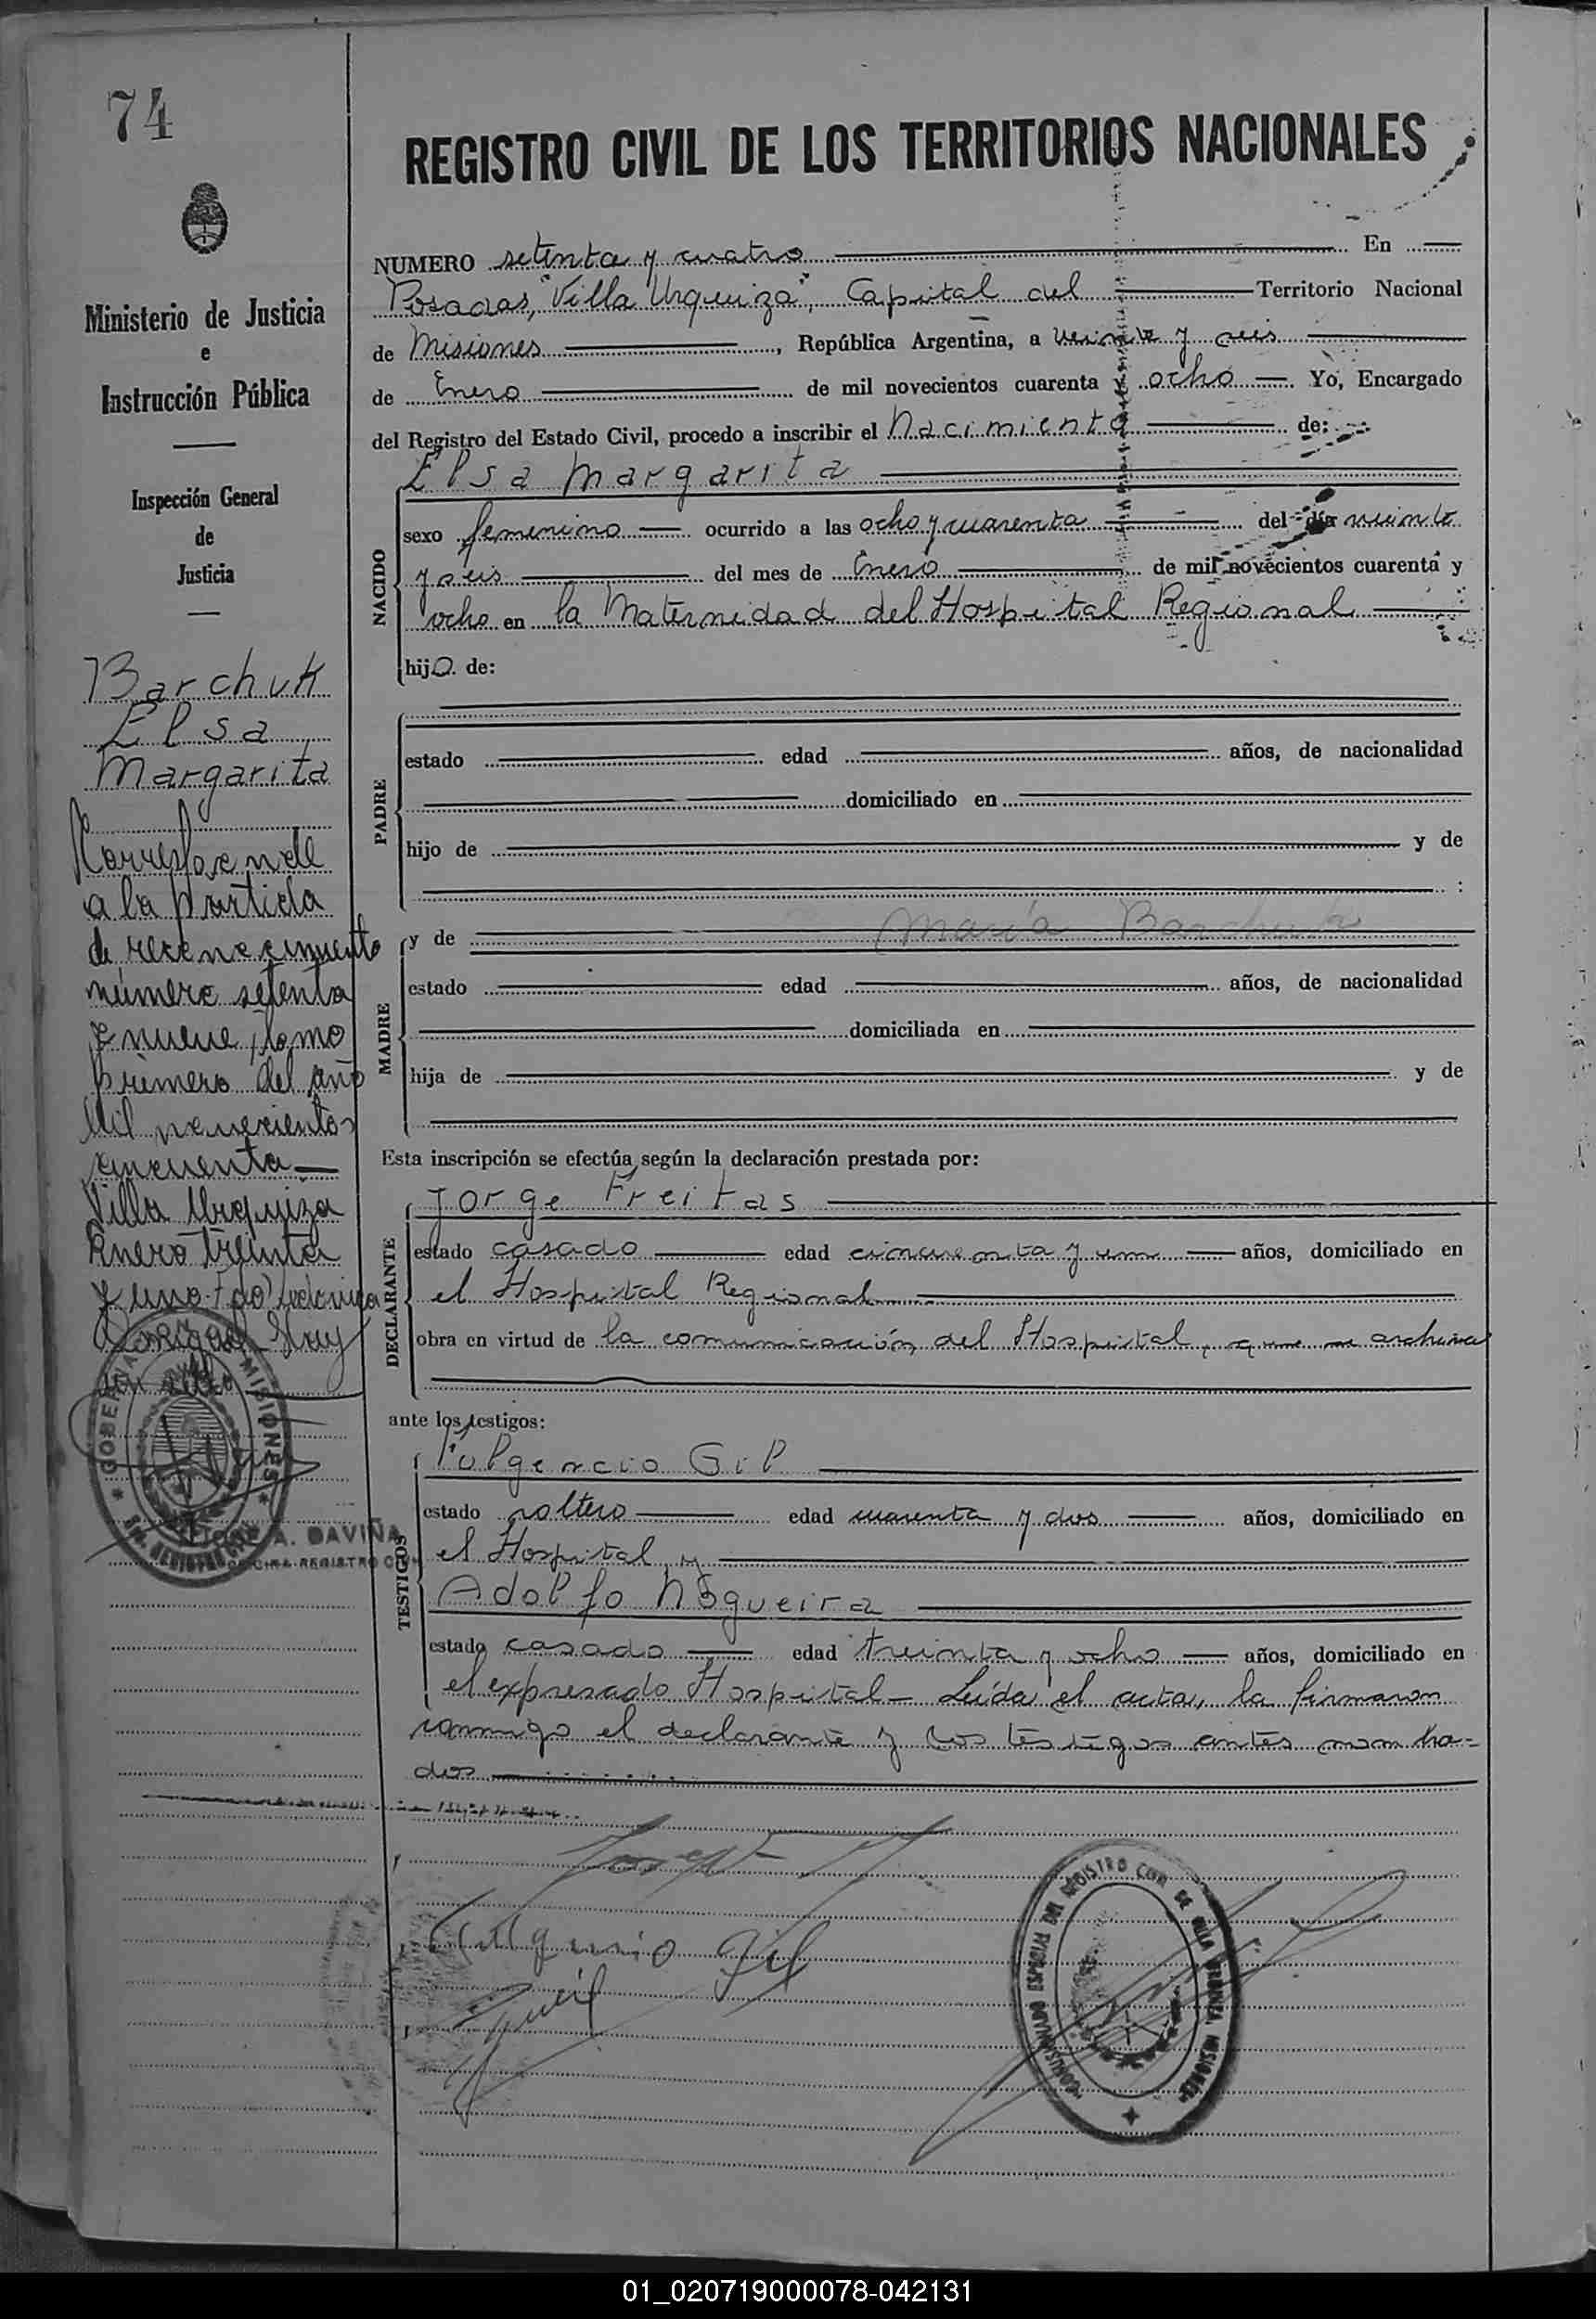 74
REGISTRO CIVIL DE LOS TERRITORIOS NACIONALES
Ministerio de Justicia
e
Instrucción Pública
Inspección General
de
Justicia
Barchuk
Elsa
Margarita
Corresponde
a la partida
de reconocimiento
número setenta
y nueve, tomo
primero del año
Mil novecientos
cincuenta
Villa Urquiza
Enero treinta
y uno. Fdo
GOBERNACION MISIONES
A. DAVIÑA
OFICINA REGISTRO CIVIL
NUMERO setenta y cuatro En
Posadas, "Villa Urquiza", Capital del Territorio Nacional
de Misiones, República Argentina, a veinte y seis
de Enero de mil novecientos cuarenta y ocho Yo, Encargado
del Registro del Estado Civil, procedo a inscribir el Nacimiento de:
NACIDO
Elsa Margarita
sexo femenino ocurrido a las ocho y cuarenta del día veinte
y seis del mes de Enero de mil novecientos cuarenta y
ocho en la Maternidad del Hospital Regional
hija de:
PADRE
estado edad años, de nacionalidad
domiciliado en
hijo de y de
:
MADRE
y de María Barchuk
estado edad años, de nacionalidad
domiciliada en
hija de y de
Esta inscripción se efectúa según la declaración prestada por:
DECLARANTE
Jorge Freitas
estado casado edad cincuenta y un años, domiciliado en
el Hospital Regional
obra en virtud de la comunicación del Hospital, que se archiva
ante los testigos:
TESTIGOS
Fulgencio Gil
estado soltero edad cuarenta y dos años, domiciliado en
el Hospital y
Adolfo Nogueira
estado casado edad treinta y ocho años, domiciliado en
el expresado Hospital - Leída el acta, la firmaron
conmigo el declarante y los testigos antes nombra-
dos
Fulgencio Gil
REGISTRO CIVIL DE VILLA URQUIZA MISIONES
01_020719000078-042131